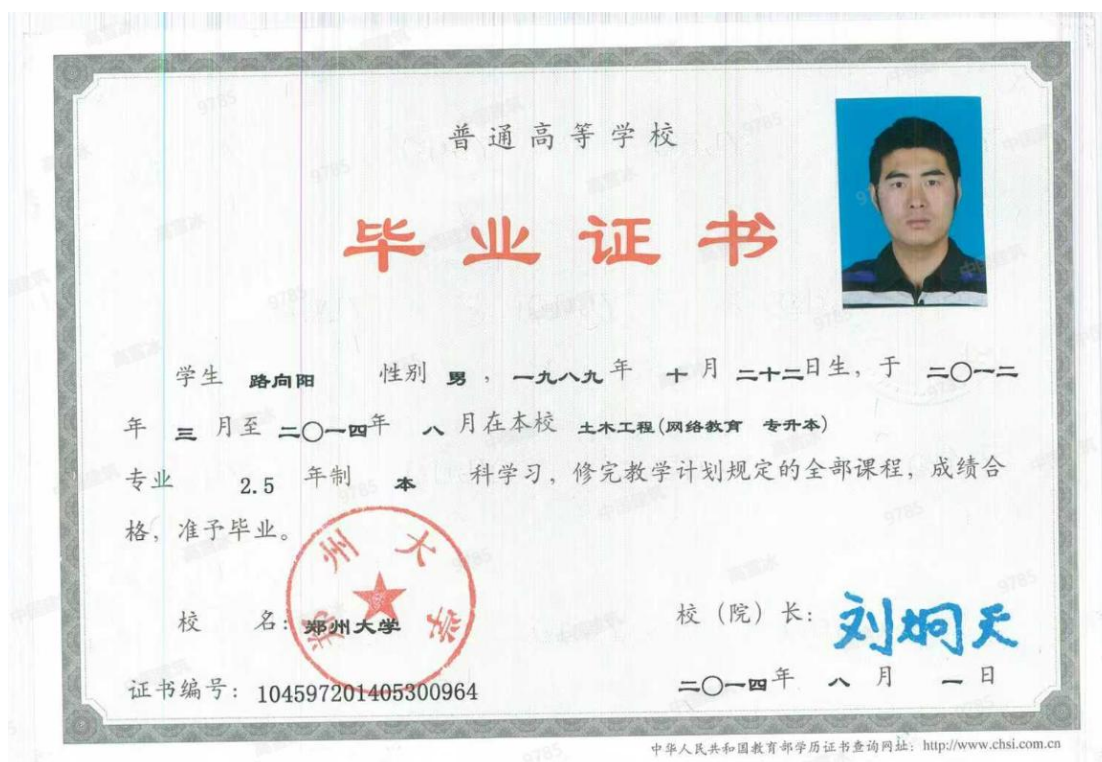 普通高等学校
毕业证书
学生 路向阳 性别 男，一九八九年 十月 二十二日生，于 二〇一二
年 三 月至 二〇一四年 八 月在本校 土木工程(网络教育 专升本)
专业 2.5 年制 本 科学习，修完教学计划规定的全部课程，成绩合
格，准予毕业。
郑州大学
校 名：郑州大学
校（院）长：刘炯天
证书编号：104597201405300964
二〇一四年 八 月 一 日
中华人民共和国教育部学历证书查询网址：http://www.chsi.com.cn
9785